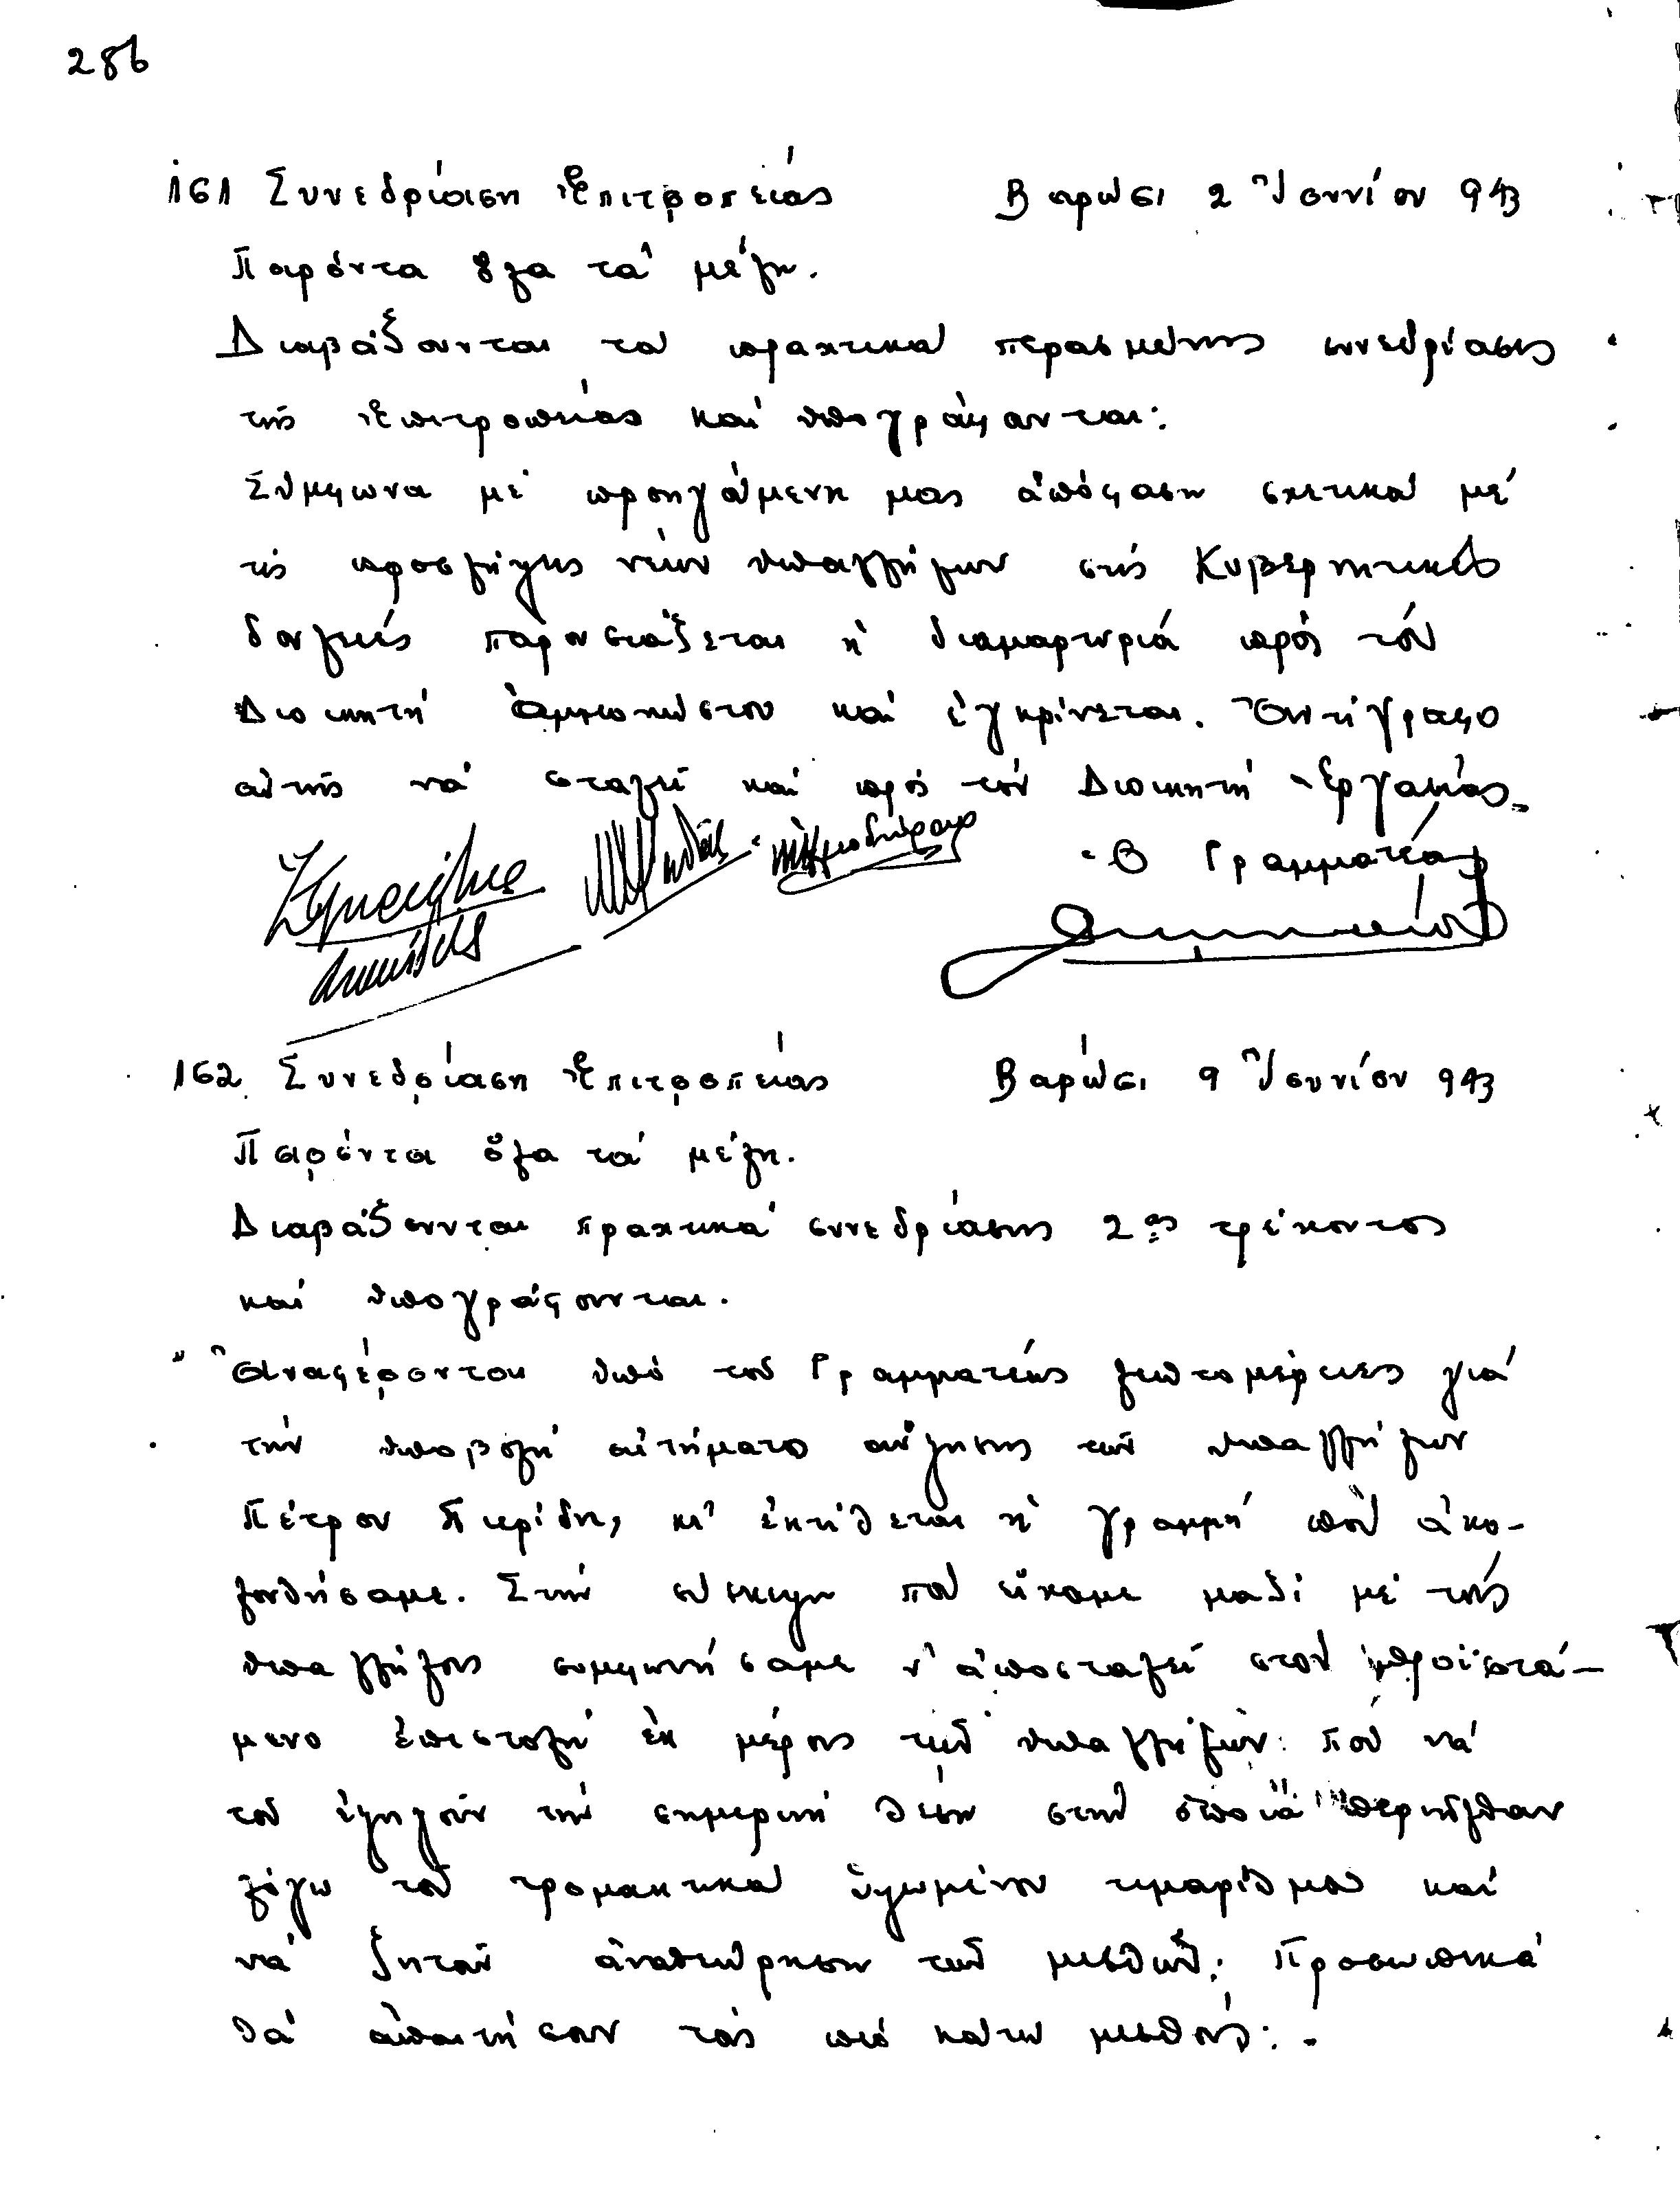 286
161 Συνεδρίαση Ἐπιτροπείας Βαρώσι 2 Ἰουνίου 943
Παρόντα ὅλα τά μέλη.
Διαβάζουνται τά πρακτικά περασμένης συνεδρίασις
τῆς Ἐπιτροπείας καί ὑπογράφονται:
Σύμφωνα μέ προηγούμενη μας ἀπόφαση σχετικά μέ
τίς προσλήψης νέων ὑπαλλήλων στίς Κυβερνητικές
δουλειές παρουσιάζεται ἡ διαμαρτυριά πρός τόν
Διοικητή Ἀμμοχώστου καί ἐγκρίνεται. Ἀντίγραφο
αὐτῆς νά σταλεῖ καί πρός τόν Διοικητή Ἐργασίας.
Ὁ Γραμματέας
162 Συνεδρίαση Ἐπιτροπείας Βαρώσι 9 Ἰουνίου 943
Παρόντα ὅλα τά μέλη.
Διαβάζουνται πρακτικά συνεδρίασης 2ας τρέχοντος
καί ὑπογράφουνται.
Ἀναφέρονται ὑπό τοῦ Γραμματέως λεπτομέρειες γιά
τήν ὑποβολή αἰτήματος αὔξησης τῶν ὑπαλλήλων
Πέτρου Πιερίδη, κι' ἐκτίθεται ἡ γραμμή πού ἀκο-
λουθήσαμε. Στήν σύσκεψη πού εἴχαμε μαζί μέ τούς
ὑπαλλήλους συμφωνήσαμε ν' ἀποσταλεῖ στόν προϊστά-
μενο ἐπιστολή ἐκ μέρους τῶν ὑπαλλήλων πού νά
τοῦ ἐξηγοῦν τήν σημερινή θέση στήν ὁποία περιῆλθαν
λόγω τοῦ τρομακτικά ὑψωμένου τιμαρίθμου καί
νά ζητοῦν ἀναθεώρηση τῶν μισθῶν. Προσωπικά
θά ἀπαιτήσουν τούς πιό κάτω μισθούς:-